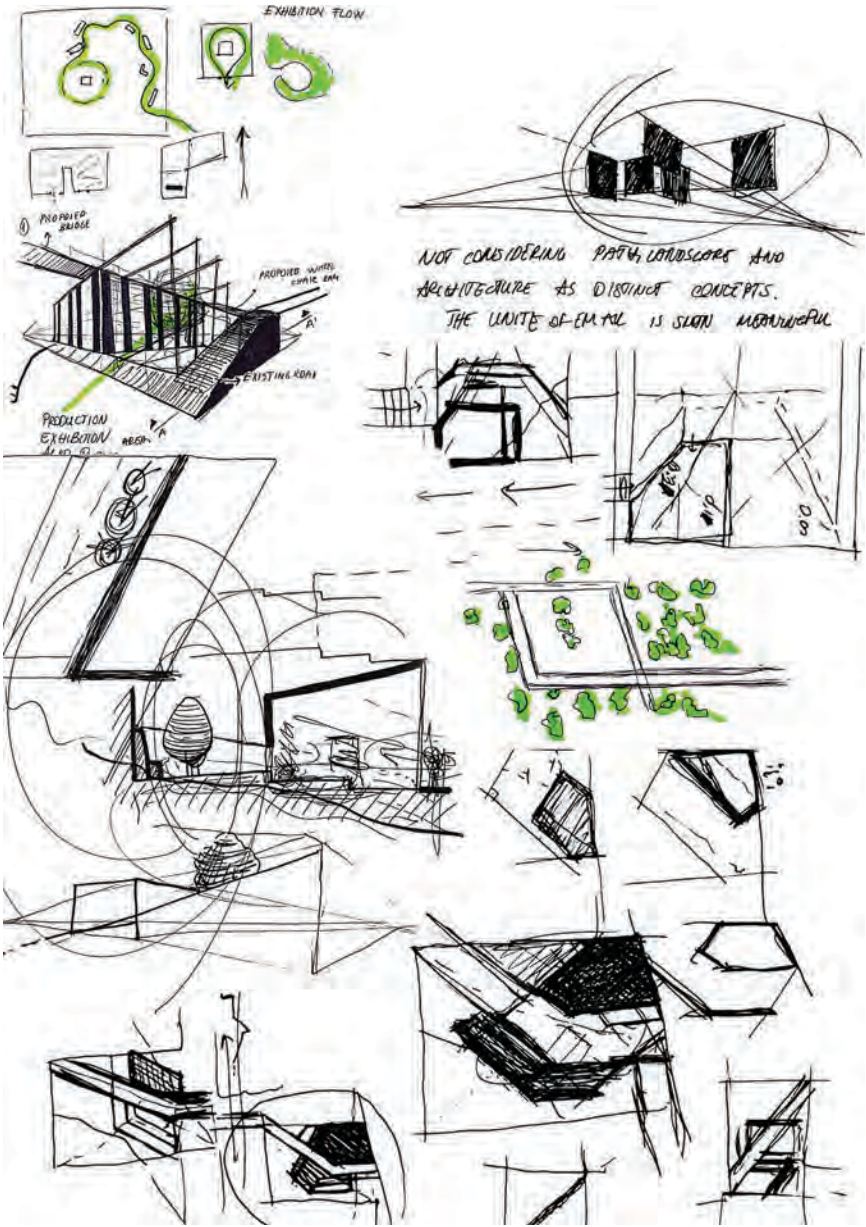 EXHIBITION FLOW
① PROPOSED
BRIDGE
PROPOSED WHEEL
CHAIR
A'
EXISTING ROAD
A
PRODUCTION
EXHIBITION
AREA
NOT CONSIDERING PATH, LANDSCAPE AND
ARCHITECTURE AS DISTINCT CONCEPTS.
THE UNITE OF IS MEANINGFUL